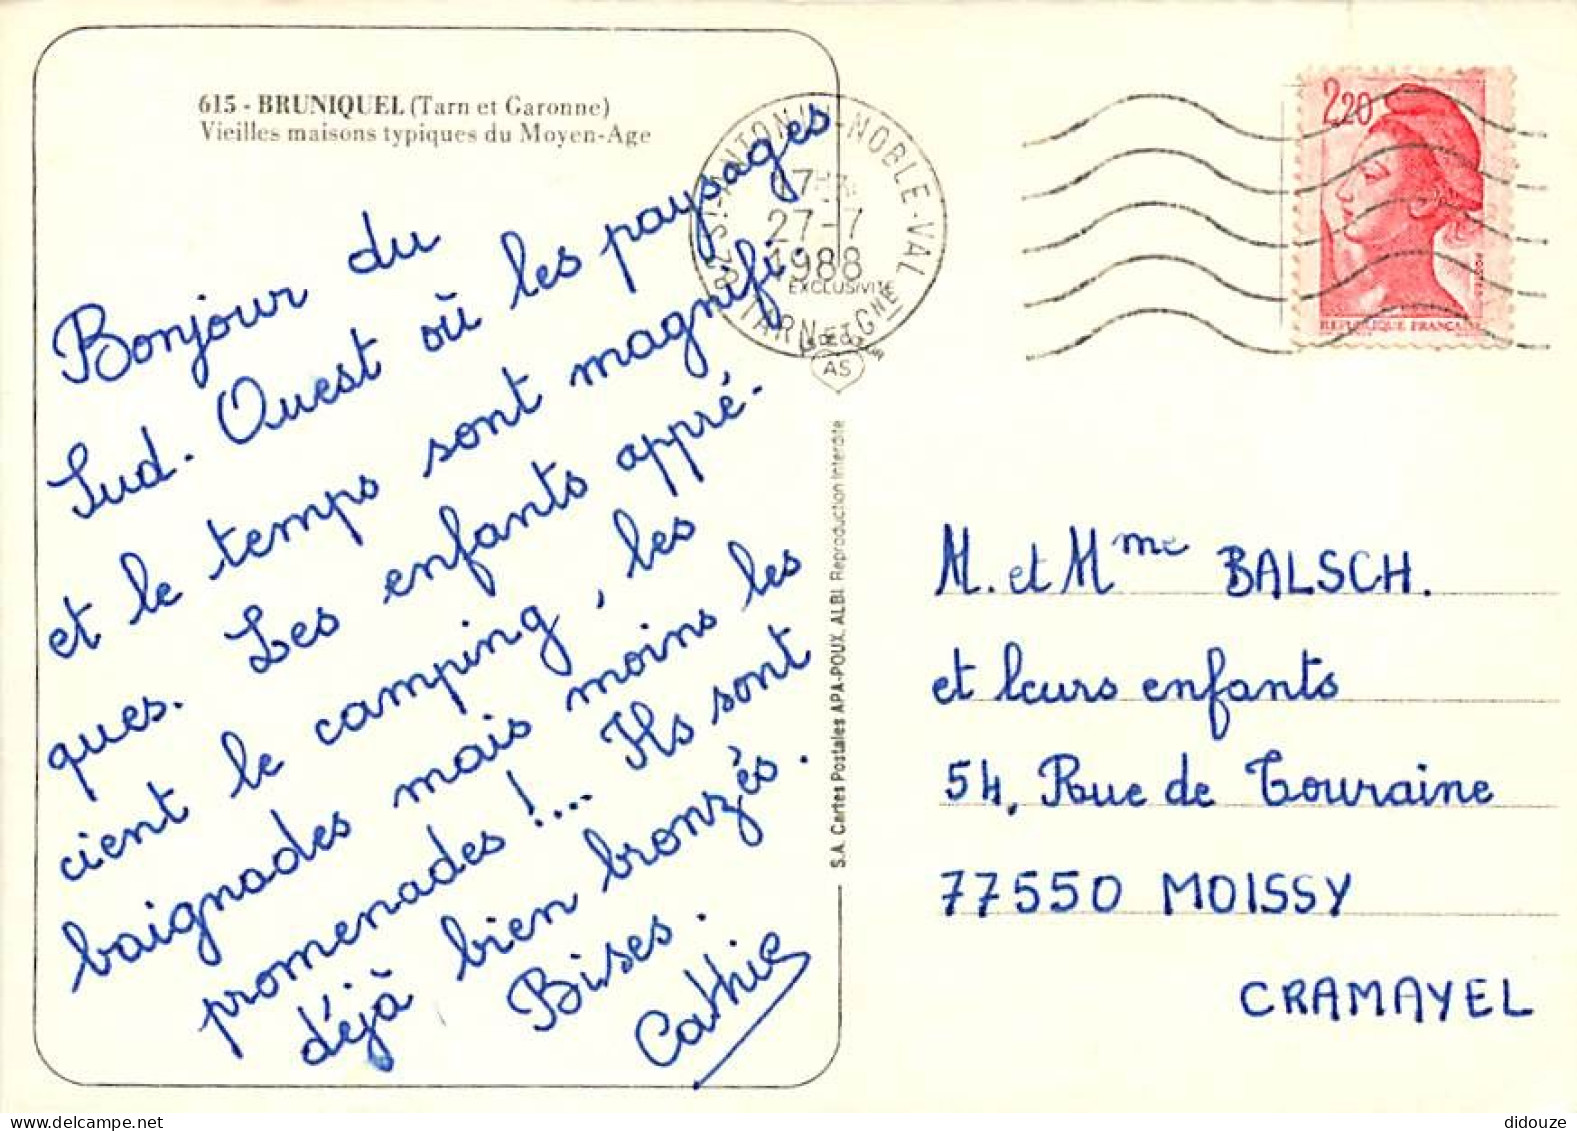 615 - BRUNIQUEL (Tarn et Garonne)
Vieilles maisons typiques du Moyen-Age
Bonjour du
Sud-Ouest où les paysages
et le temps sont magnifi-
ques. Les enfants appré-
cient le camping, les
baignades mais moins les
promenades !... Ils sont
déjà bien bronzés.
Bises.
Cathie
82 ST-ANTONIN-NOBLE-VAL
27-7
1988
TARN ET GNE
EXCLUSIVITÉ
AS
S.A. Cartes Postales APA-POUX, ALBI. Reproduction Interdite
2,20
POSTES
REPUBLIQUE FRANÇAISE
M. et Mme BALSCH.
et leurs enfants
54, Rue de Touraine
77550 MOISSY
CRAMAYEL
didouze